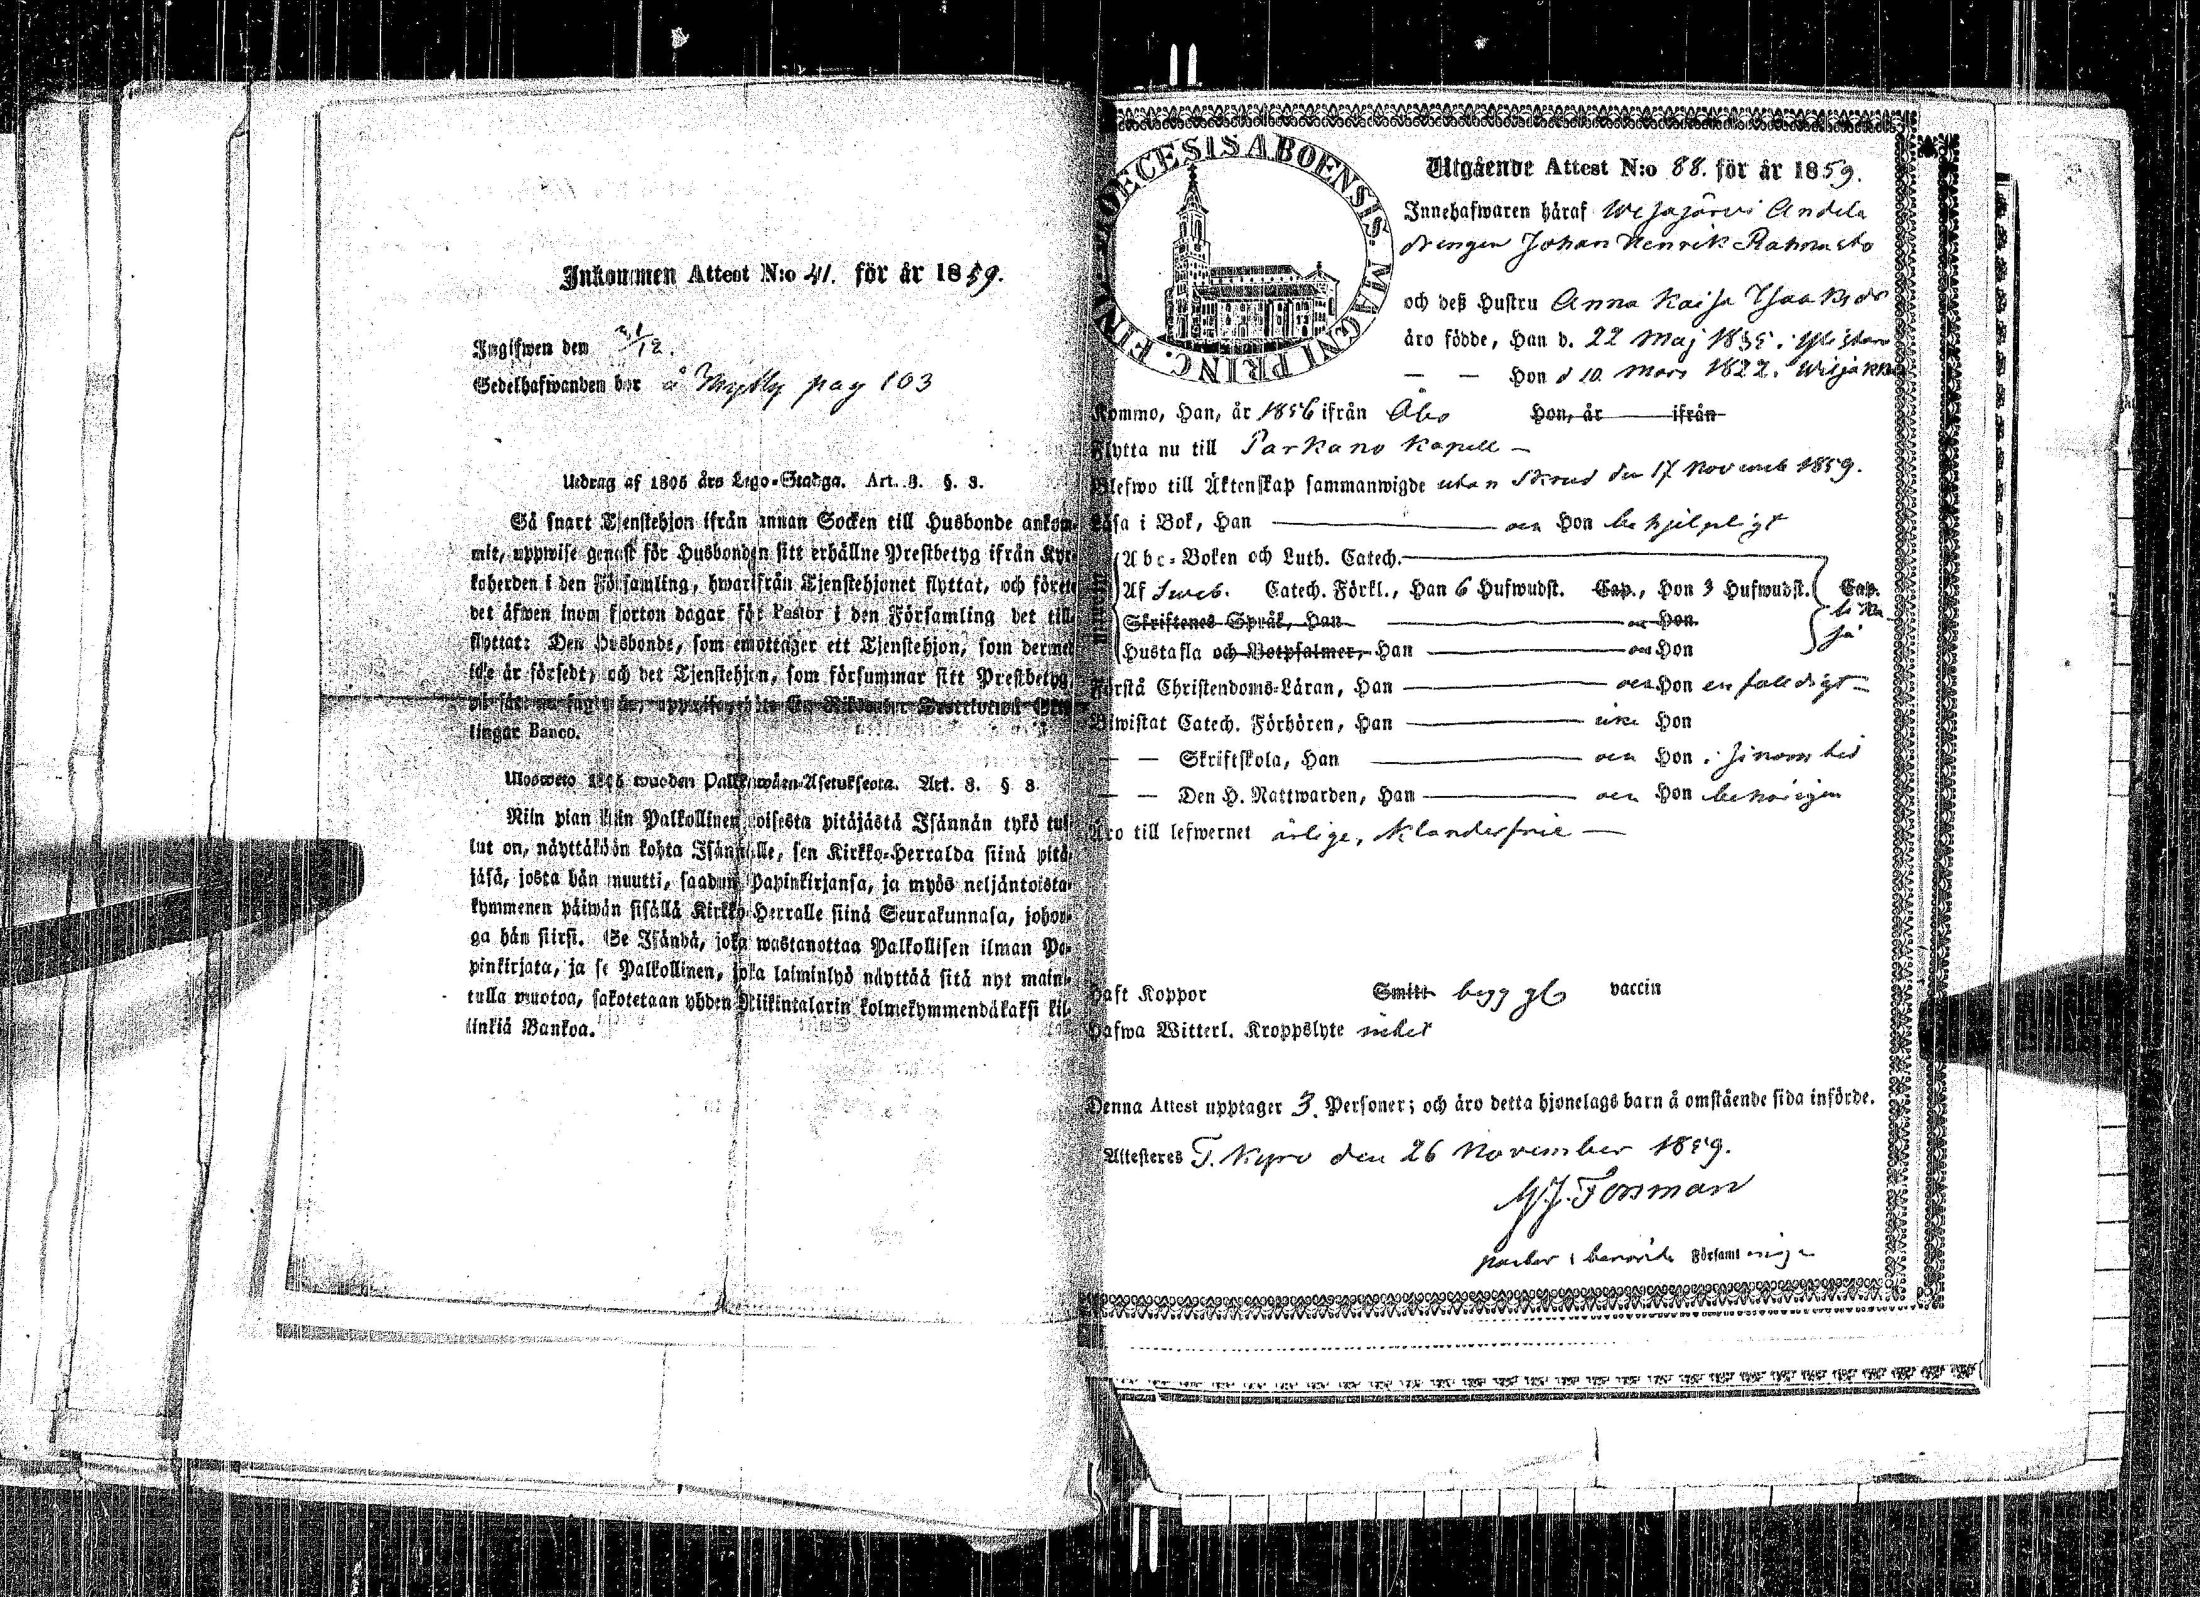 Inkommen Attest N:o 41. för år 1859.
Ingifwen den 31/12.
Sedelhafwanden bor å pag 103
Utdrag af 1805 års Lego-Stadga. Art. 3. §. 3.
Så snart Tjenstehjon ifrån annan Socken till Husbonde ankom-
mit, uppwise genast för Husbonden sitt erhållne Prestbetyg ifrån Kyr-
koherden i den Församling, hwarifrån Tjenstehjonet flyttat, och förete
det äfwen inom fjorton dagar för Pastor i den Församling det till-
flyttat: Den Husbonde, som emottager ett Tjenstehjon, som dermed
icke är försedt, och det Tjenstehjon, som försummar sitt Prestbetyg,
lingar Banco.
Ulosweto 1805 wuoden Palkkawäen-Asetuksesta. Art. 3. § 3.
Niin pian kuin Palkollinen toisesta pitäjästä Isännän tykö tul-
lut on, näyttäköön kohta Isännälle, sen Kirkko-Herralda siinä pitä-
jäsä, josta hän muutti, saadun Papinkirjansa, ja myös neljäntoista-
kymmenen päiwän sisällä Kirkko-Herralle siinä Seurakunnasa, johon-
ga hän siirsi. Se Isändä, joka wastanottaa Palkollisen ilman Pa-
pinkirjata, ja se Palkollinen, joka laiminlyö näyttää sitä nyt maini-
tulla muotoa, sakotetaan yhden Riikintalarin kolmekymmendäkaksi kil-
linkiä Bankoa.
DIOECESIS ABOENSIS. MAGNI PRINC. FINL.
Utgående Attest N:o 88. för år 1859.
Innehafwaren häraf Wesajärvi Andela
drengen Johan Henrik
och deß Hustru Anna Kaisa Isaaksdr
äro födde, Han d. 22 Maj
— — Hon d 10 Mars 1822.
Kommo, Han, år 1856 ifrån Åbo Hon, år ifrån
Flytta nu till Parkano Kapell —
Blefwo till Äktenskap sammanwigde utan Skrud den 17 Novemb 1859.
Läsa i Bok, Han och Hon behjelpligt
Abc-Boken och Luth. Catech.
Af Sveb. Catech. Förkl., Han 6 Hufwudst. Cap., Hon 3 Hufwudst. Cap.
Skriftenes Språk, Han och Hon
Hustafla och Botpsalmer, Han och Hon
Förstå Christendoms-Läran, Han och Hon enfaldigt
Biwistat Catech. Förhören, Han Hon
— — Skriftskola, Han och Hon i sinom tid
— — Den H. Nattwarden, Han och Hon behörigen
Äro till lefwernet ärlige, klanderfrie —
Haft Koppor Smitt begge vaccin
Hafwa Witterl. Kroppslyte intet
Denna Attest upptager 3. Personer; och äro detta hjonelags barn å omstående sida införde.
Attesteras T. Kyro den 26 November 1859.
Forsman
Församl